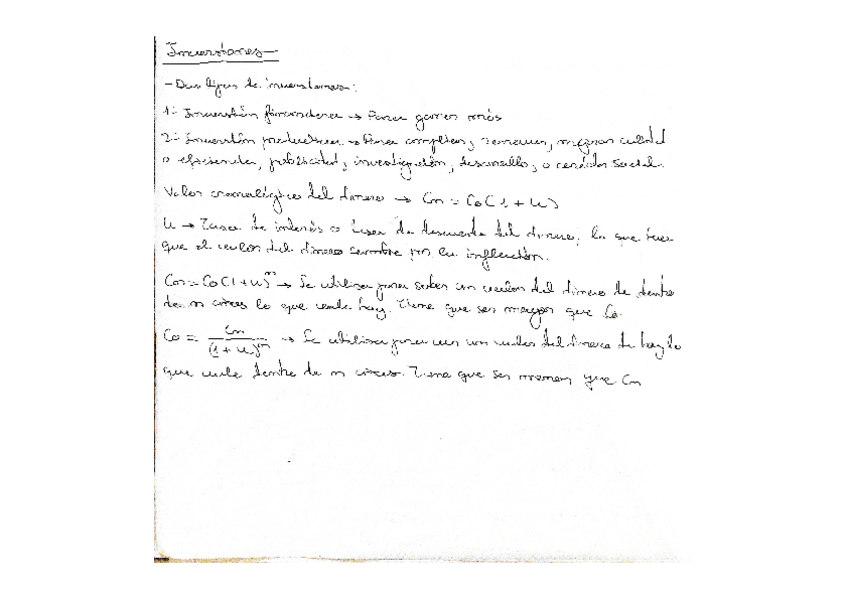 Inversiones
- Dos tipos de inversiones:
1- Inversión financiera → Para ganar más
2- Inversión productiva → Para ampliar, renovar, mejorar calidad
o eficiencia, publicidad, investigación, desarrollo, o carácter social.
Valor cronológico del dinero → Cn = Co(1 + k)
k → Tasa de interés o tasa de descuento del dinero, lo que hace
que el valor del dinero cambie por la inflación.
Cn = Co(1 + k)ⁿ → Se utiliza para saber con valor del dinero de dentro
de n años lo que vale hoy. Tiene que ser mayor que Co.
Co = Cn / (1 + k)ⁿ → Se utiliza para ver con valor del dinero de hoy lo
que vale dentro de n años. Tiene que ser menor que Cn